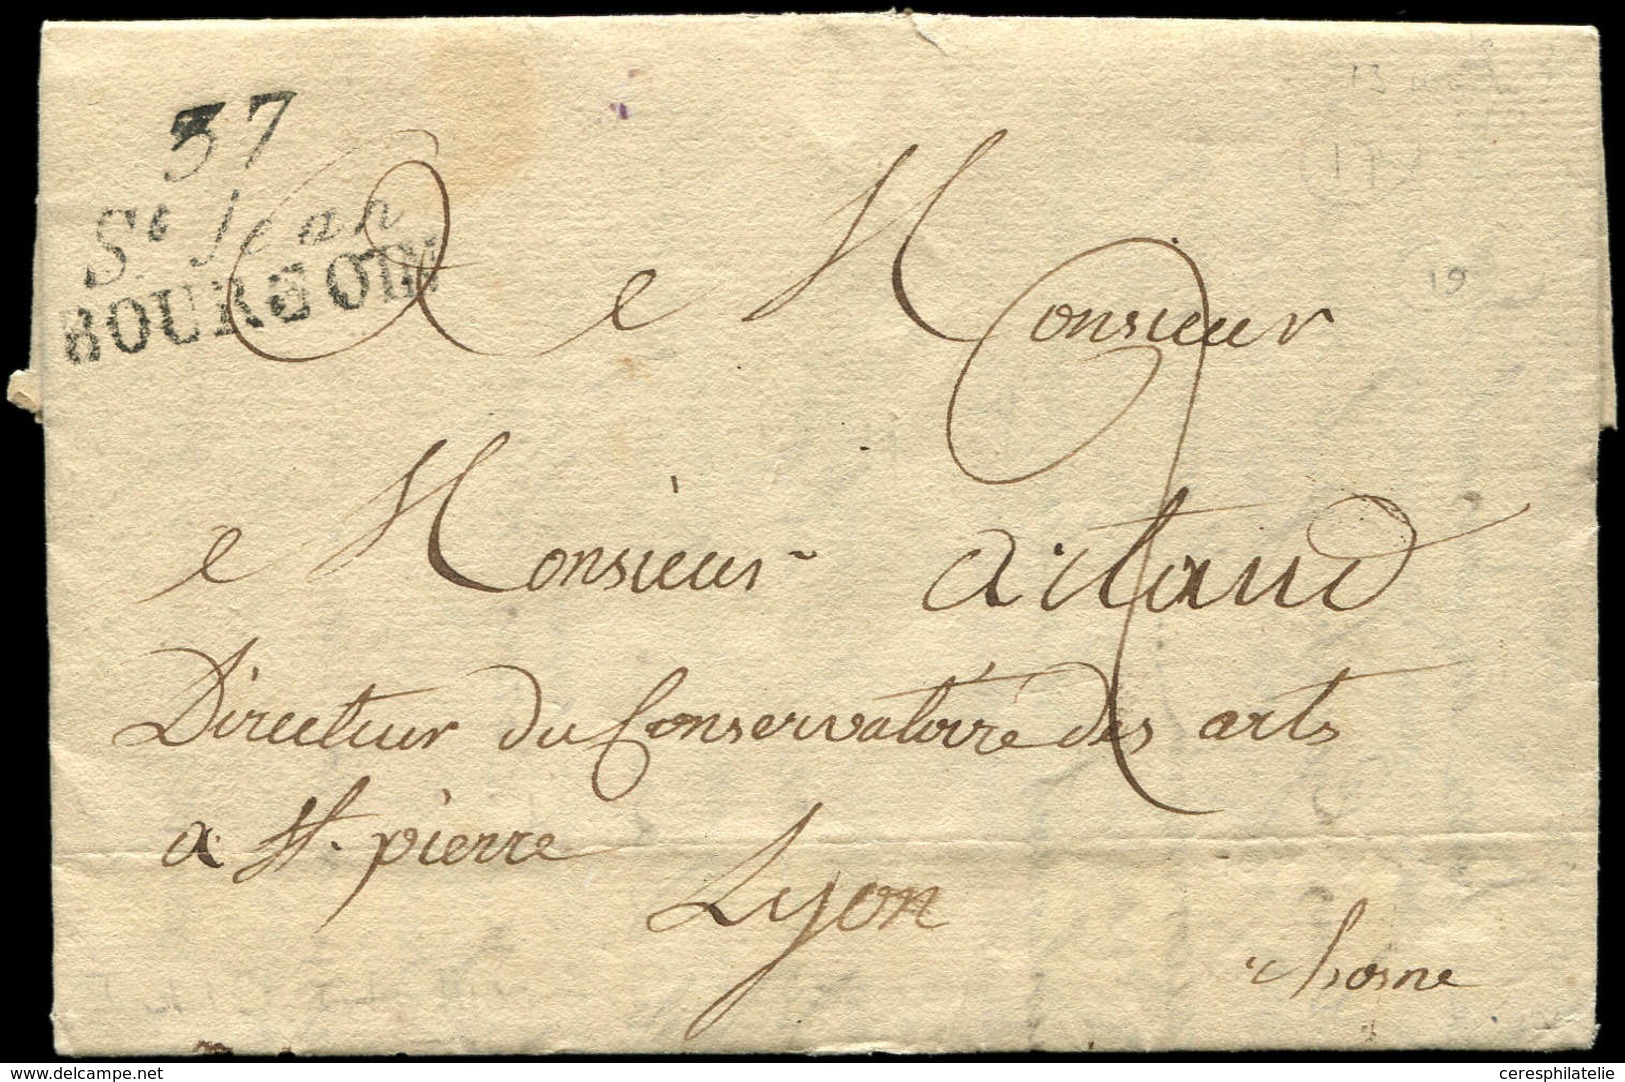 37
St Jean
BOURGOIN
13
19
A e Monsieur
e Monsieur artaud
Directeur du Conservatoire des arts
a St. pierre
Lyon
rhosne
delcampe.net
ceresphilatelie